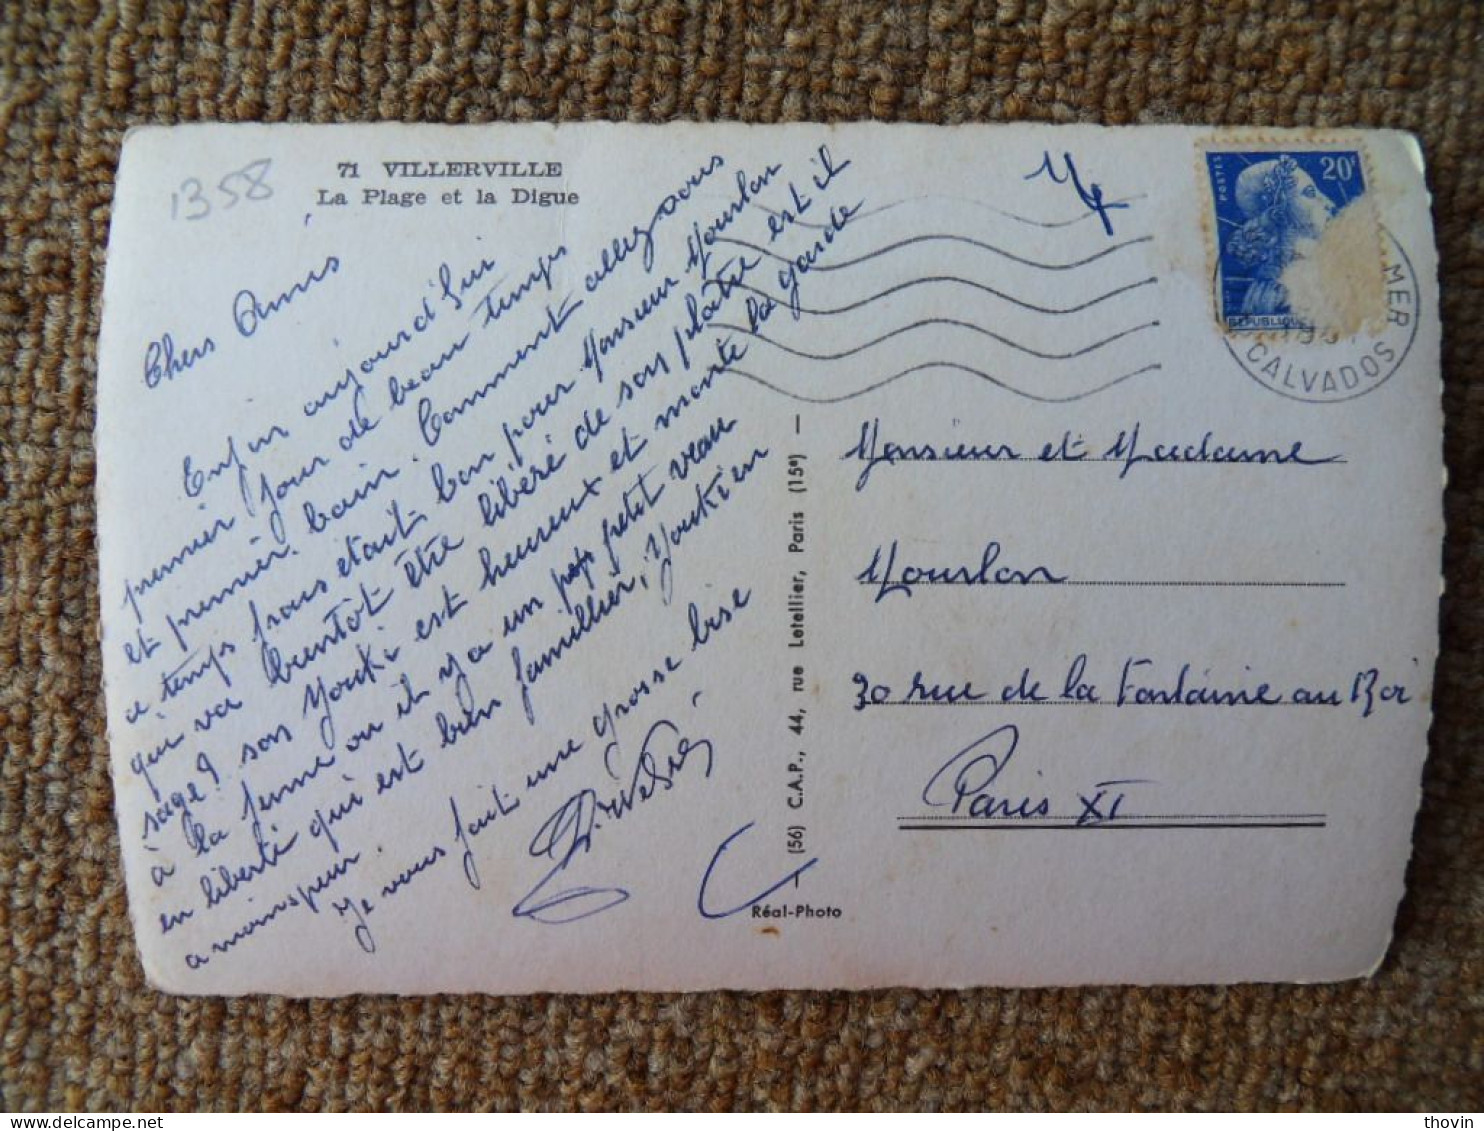 1358
71 VILLERVILLE
La Plage et la Digue
Chers Amis
Enfin aujourd'hui
premier jour de beau temps
et premier bain. Comment allez vous
ce temps frais était bon pour Monsieur Mourlon
qui va bientôt être libéré de son plâtre est il
sage? son Youki est heureux et monte la garde
à la ferme ou il y a un petit veau
en liberté qui est bien famillier, Youki en
a moins peur.
Je vous fait une grosse bise
(56) C.A.P., 44, rue Letellier, Paris (15e)
Réal-Photo
20F
POSTES
REPUBLIQUE
MER
CALVADOS
Monsieur et Madame
Mourlon
30 rue de la Fontaine au Roi
Paris XI
thovin